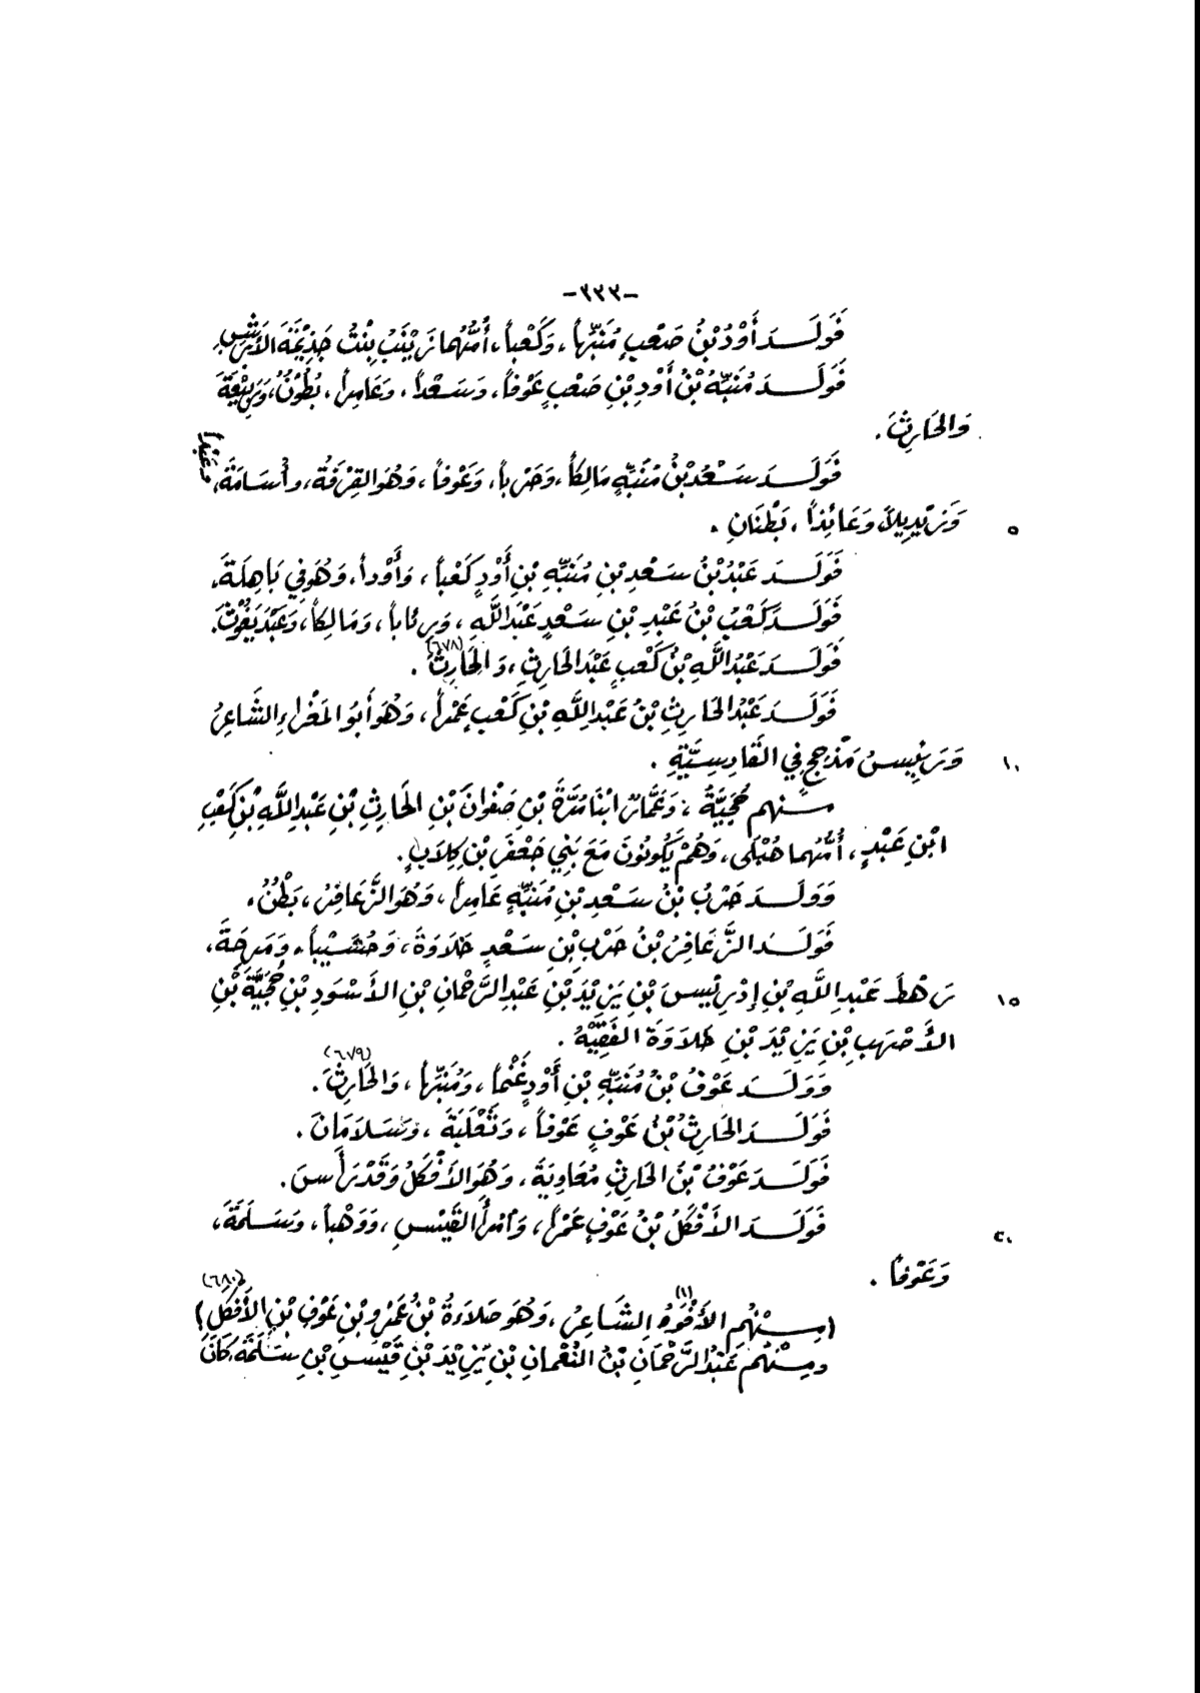 -٣٣٣-
فَوَلَدَ أَوْدُ بْنُ صَعْبٍ مُنَبِّهاً، وَكَعْباً، أُمُّهُما زَيْنَبُ بِنْتُ جَذِيْمَةَ الأَبْرَشِ.
فَوَلَدَ مُنَبِّهُ بْنُ أَوْدِ بْنِ صَعْبٍ عَوْفاً، وَسَعْداً، وَعَامِراً، بُطُوْنٌ، وَرَبِيْعَةَ
وَالحَارِثَ.
فَوَلَدَ سَعْدُ بْنُ مُنَبِّهٍ مَالِكاً، وَحَرْباً، وَعَوْفاً، وَهُوَ القِرْفَةُ، وأُسَامَةَ، وَعَبْداً
٥ وَزَيْدٍ يلاً وَعَائِذاً، بَطْنَانِ.
فَوَلَدَ عَبْدُ بْنُ سَعْدِ بْنِ مُنَبِّهِ بْنِ أَوْدٍ كَعْباً، وَأَوْداً، وَهُوَ فِي بَاهِلَةَ.
فَوَلَدَ كَعْبُ بْنُ عَبْدِ بْنِ سَعْدٍ عَبْدَ اللَّهِ، وَرِئَاباً، وَمَالِكاً، وَعَبْدَ يَغُوْثَ.
فَوَلَدَ عَبْدُ اللَّهِ بْنُ كَعْبٍ عَبْدَ الحَارِثِ، وَالحَارِثَ (٦٧٨).
فَوَلَدَ عَبْدُ الحَارِثِ بْنُ عَبْدِ اللَّهِ بْنِ كَعْبٍ عَمْراً، وَهُوَ أَبُو المَغْرَاءِ الشَّاعِرُ
١٠ وَرَئِيسُ مَذْحِجٍ فِي القَادِسِيَّةِ.
مِنْهم حُجَيَّةُ، وَعَمَّارٌ ابْنَا مُرَّةَ بْنِ صَفْوَانَ بْنِ الحَارِثِ بْنِ عَبْدِ اللَّهِ بْنِ كَعْبِ
ابْنِ عَبْدٍ، أُمُّهُما هُبْلَى، وَهُمْ يَكُونُونَ مَعَ بَنِي جَعْفَرِ بْنِ كِلَابٍ.
وَوَلَدَ حَرْبُ بْنُ سَعْدِ بْنِ مُنَبِّهٍ عَامِراً، وَهُوَ الزَّعَافِرُ، بَطْنٌ.
فَوَلَدَ الزَّعَافِرُ بْنُ حَرْبِ بْنِ سَعْدٍ حَلَاوَةَ، وَحُشَيْباً، وَمَرِحَةَ،
١٥ رَهْطَ عَبْدِ اللَّهِ بْنِ إِدْرِيْسَ بْنِ يَزِيْدَ بْنِ عَبْدِ الرَّحْمَانِ بْنِ الأَسْوَدِ بْنِ حُجَيَّةَ بْنِ
الأَصْهَبِ بْنِ يَزِيْدَ بْنِ حَلَاوَةَ الفَقِيْهُ.
وَوَلَدَ عَوْفُ بْنُ مُنَبِّهِ بْنِ أَوْدٍ غَنْماً، وَمُنَبِّهاً، وَالحَارِثَ (٦٧٩).
فَوَلَدَ الحَارِثُ بْنُ عَوْفٍ عَوْفاً، وَثَعْلَبَةَ، وَسَلَامَانَ.
فَوَلَدَ عَوْفُ بْنُ الحَارِثِ مُعَاوِيَةَ، وَهُوَ الأَفْكَلُ وَقَدْ رَأَسَ.
٢٠ فَوَلَدَ الأَفْكَلُ بْنُ عَوْفٍ عَمْراً، وَامْرَأَ القَيْسِ، وَوَهْباً، وَسَلَمَةَ،
وَعَوْفاً.
(مِنْهُمِ الأَفْوَهُ (١) الشَّاعِرُ، وَهُوَ صَلَاءَةُ بْنُ عَمْرِو بْنِ عَوْفِ بْنِ الأَفْكَلِ) (٦٨٠)
وَمِنْهُم عَبْدُ الرَّحْمَانِ بْنُ النُّعْمَانِ بْنِ يَزِيْدَ بْنِ قَيْسِ بْنِ سَلَمَةَ، كَانَ